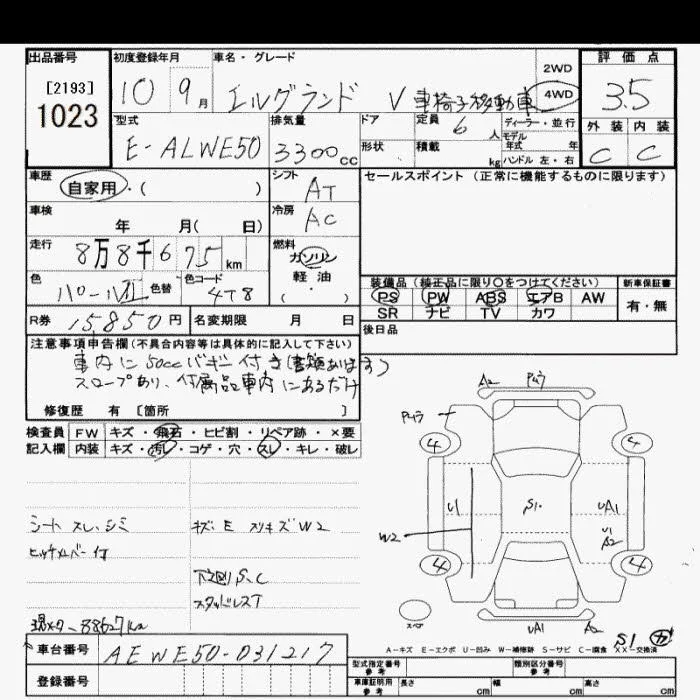 出品番号
[2193]
1023
初度登録年月
10 9月
車名・グレード
エルグランド V 車椅子移動車
2WD
4WD
評価点
3.5
外装 内装
C C
型式
E-ALWE50
排気量
3300cc
ドア
形状
定員 6人
積載 kg
ディーラー・並行
モデル年式 年
ハンドル 左・右
車歴
自家用・( )
シフト
AT
セールスポイント(正常に機能するものに限ります)
車検
年 月( 日)
冷房
AC
走行
8万8千675km
燃料
ガソリン
軽油
( ・ )
色
パールII
色替
色コード
4T8
装備品(純正品に限り○をつけてください)
PS PW ABS エアB AW
SR ナビ TV カワ
新車保証書
有・無
R券 15,850円
名変期限 月 日
後日品
注意事項申告欄(不具合内容等は具体的に記入して下さい)
車内に50ccバギー付き(書類あります)
スロープあり、付属品車内にあるだけ
修復歴 有 [箇所 ]
検査員 FW キズ・飛石・ヒビ割・リペア跡・×要
記入欄 内装 キズ・汚レ・コゲ・穴・スレ・キレ・破レ
シート スレ、シミ
キズ、E スリキズ W2
ヒッチメンバー付
下廻りS、C
スタッドレスT
現メーター 88627km
A2
4 4
U1 S1. UA1
U1
A2
W2
4 4
スペア
UA1 A2
S1 ガ
A-キズ E-エクボ U-凹み W-補修跡 S-サビ C-腐食 XX-交換済
車台番号 AEWE50-031217
登録番号
型式指定番号 参考
類別区分番号 参考
車庫証明用 参考
長さ cm
幅 cm
高さ cm